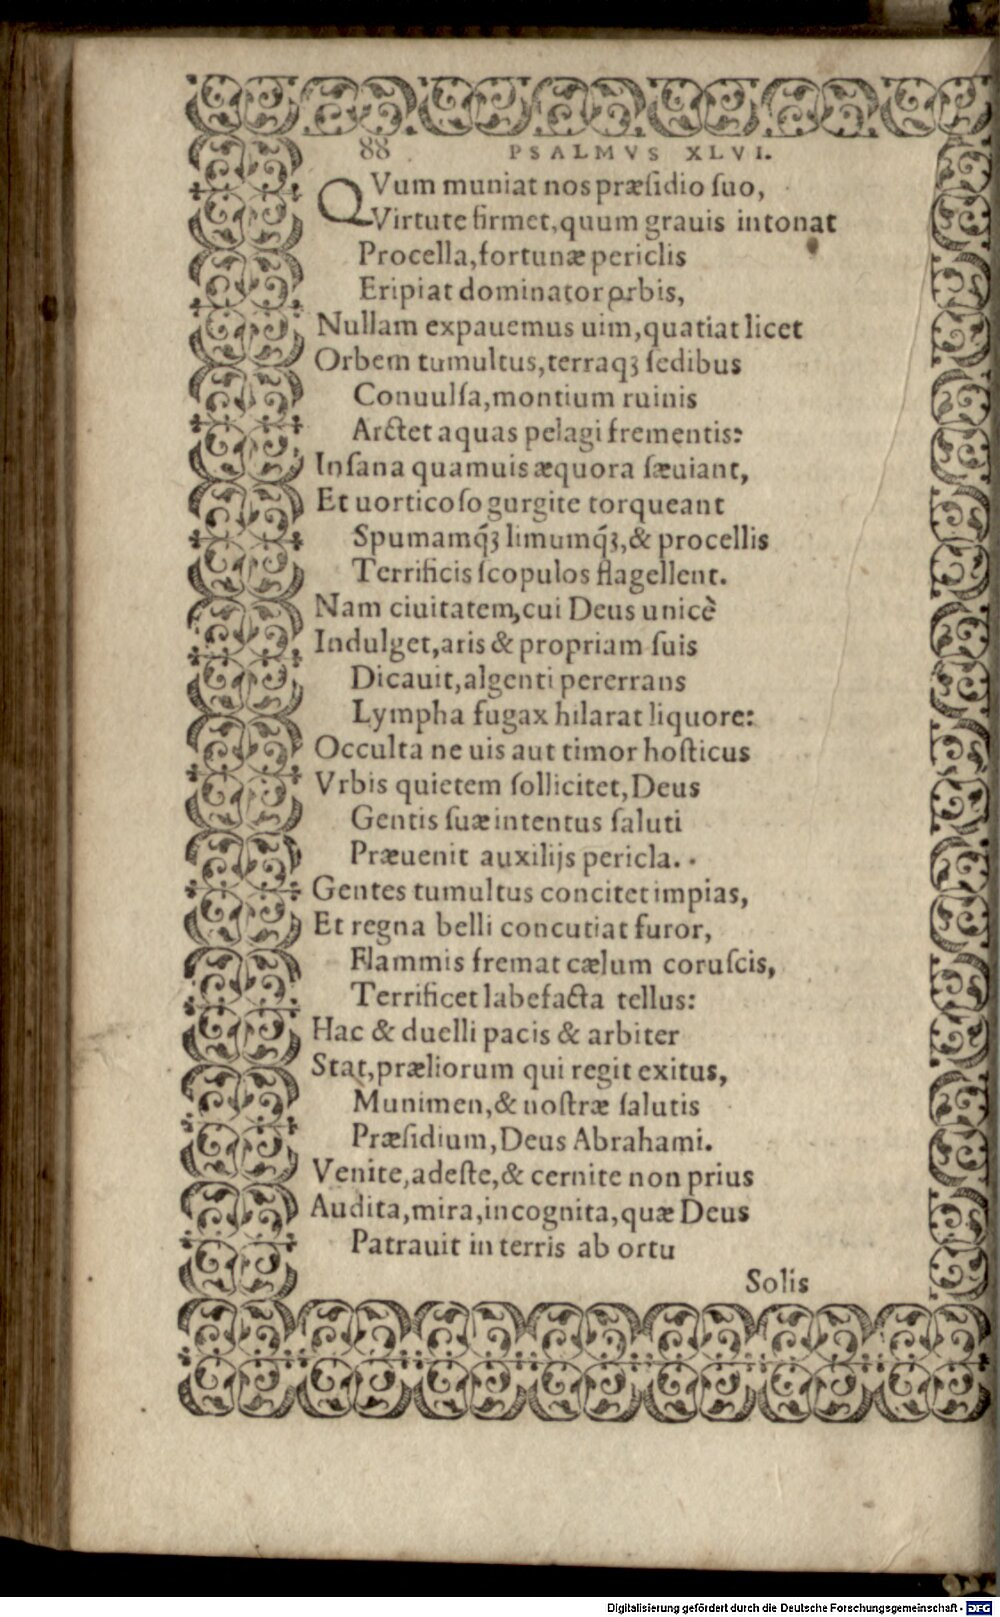 88 PSALMVS XLVI.
QVum muniat nos præſidio ſuo,
Virtute firmet, quum grauis intonat
Procella, fortunæ periclis
Eripiat dominator orbis,
Nullam expauemus uim, quatiat licet
Orbem tumultus, terraqꝫ ſedibus
Conuulſa, montium ruinis
Arctet aquas pelagi frementis:
Inſana quamuis æquora ſæuiant,
Et uorticoſo gurgite torqueant
Spumamq́ꝫ limumq́ꝫ, & procellis
Terrificis ſcopulos flagellent.
Nam ciuitatem, cui Deus unicè
Indulget, aris & propriam ſuis
Dicauit, algenti pererrans
Lympha fugax hilarat liquore:
Occulta ne uis aut timor hoſticus
Vrbis quietem ſollicitet, Deus
Gentis ſuæ intentus ſaluti
Præuenit auxilijs pericla.
Gentes tumultus concitet impias,
Et regna belli concutiat furor,
Flammis fremat cælum coruſcis,
Terrificet labefacta tellus:
Hac & duelli pacis & arbiter
Stat, præliorum qui regit exitus,
Munimen, & noſtræ ſalutis
Præſidium, Deus Abrahami.
Venite, adeſte, & cernite non prius
Audita, mira, incognita, quæ Deus
Patrauit in terris ab ortu
Solis
Digitalisierung gefördert durch die Deutsche Forschungsgemeinschaft - DFG